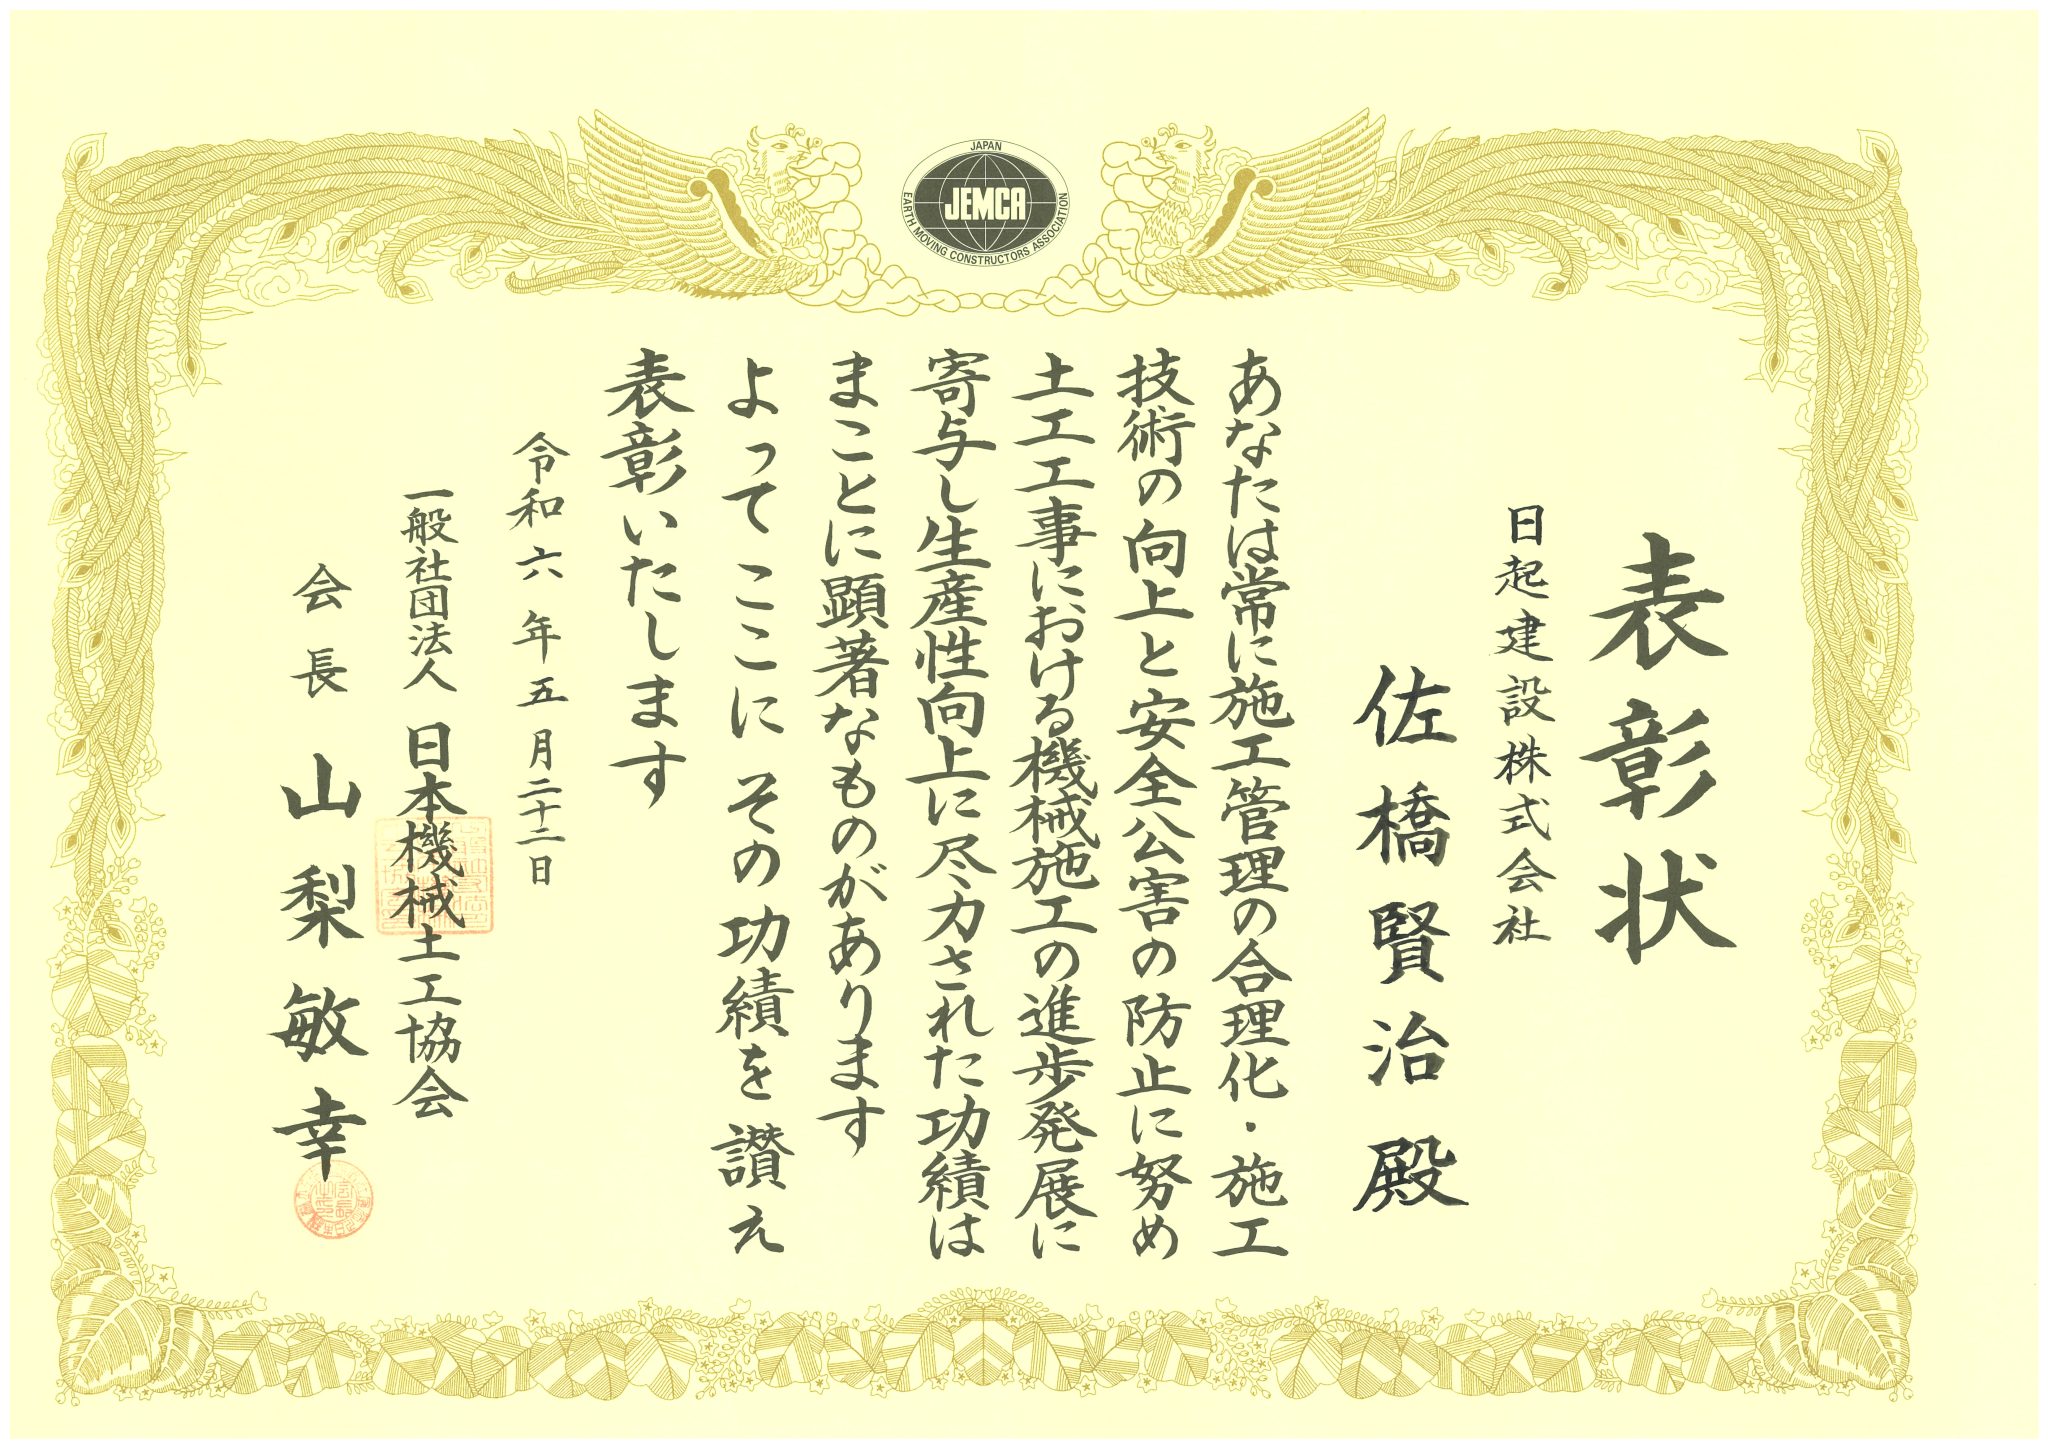 JAPAN
JEMCA
EARTH MOVING CONSTRUCTORS ASSOCIATION
表彰状
日起建設株式会社
佐橋賢治殿
あなたは常に施工管理の合理化・施工
技術の向上と安全公害の防止に努め
土工工事における機械施工の進歩発展に
寄与し生産性向上に尽力された功績は
まことに顕著なものがあります
よってここにその功績を讃え
表彰いたします
令和六年五月二十二日
一般社団法人日本機械土工協会
会長山梨敏幸